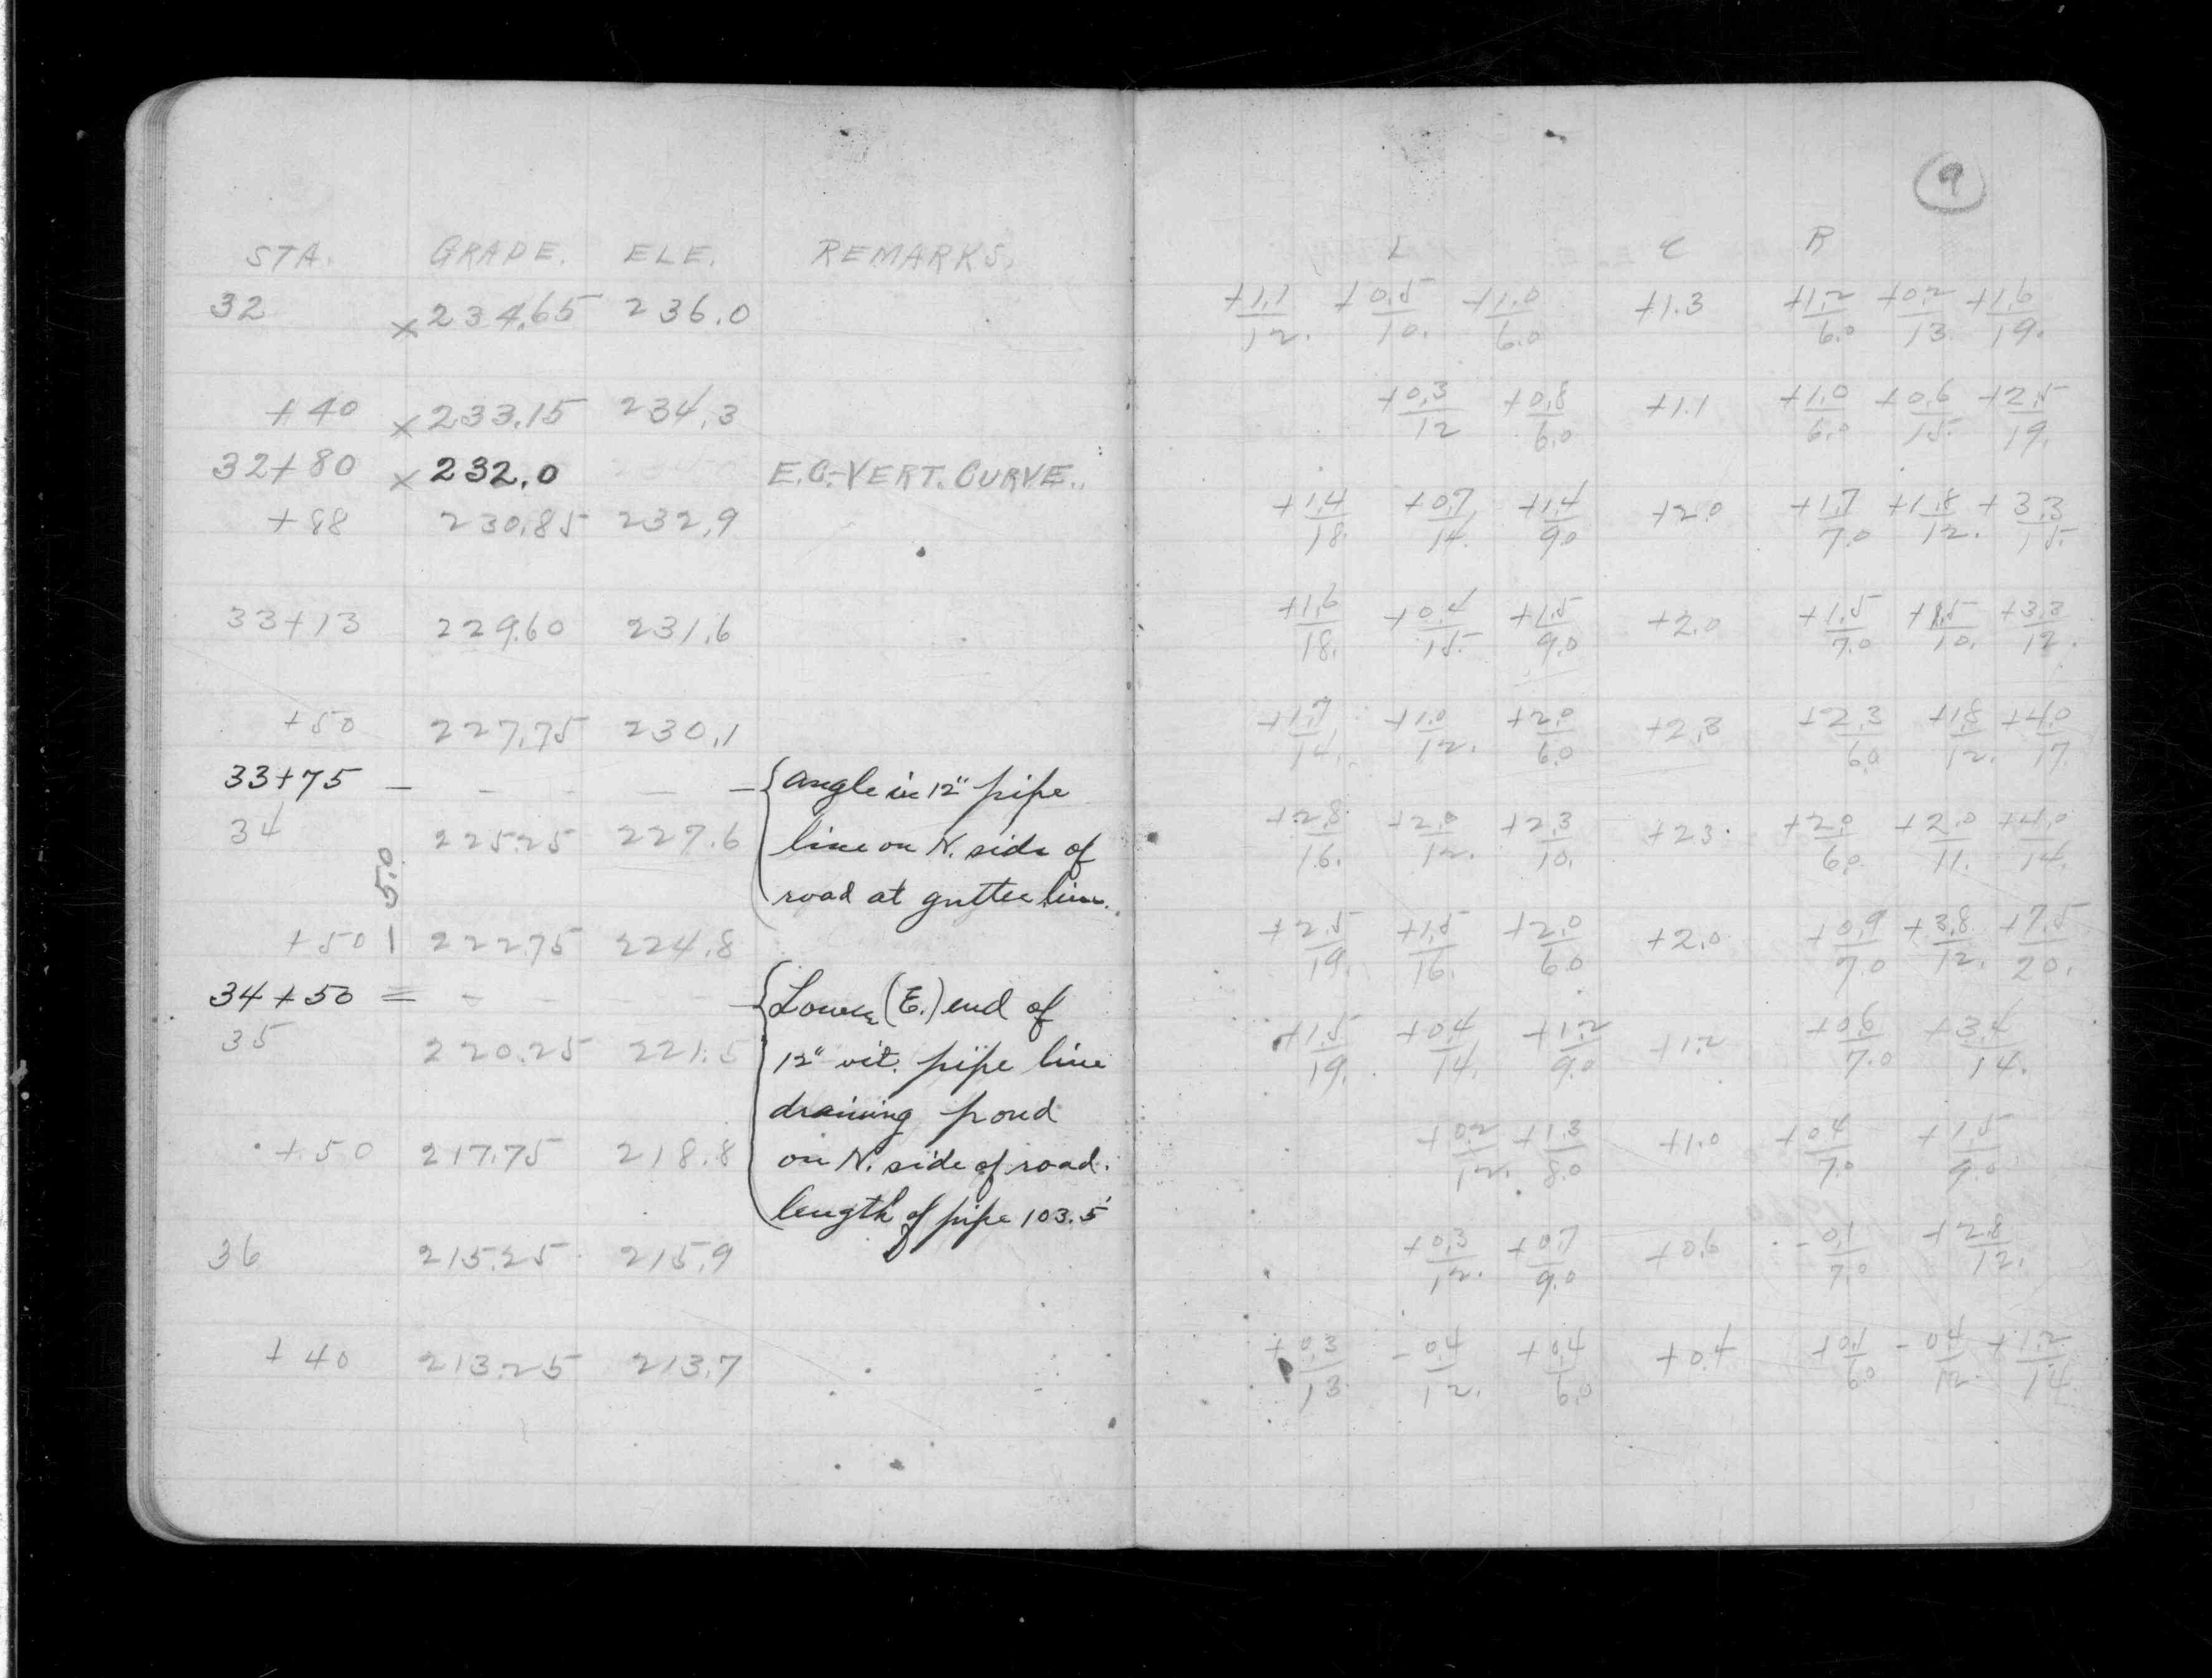 9
STA. GRADE. ELE. REMARKS. L ℄ R
32 x 234.65 236.0 +1.1/12. +0.5/10. +1.0/6.0 +1.3 +1.2/6.0 +0.2/13. +1.6/19.
+40 x 233.15 234.3 +0.3/12 +0.8/6.0 +1.1 +1.0/6.0 +0.6/15. +2.5/19.
32+80 x 232.0 E.C.-VERT. CURVE.
+88 230.85 232.9 +1.4/18. +0.7/14. +1.4/9.0 +2.0 +1.7/7.0 +1.8/12. +3.3/15.
33+13 229.60 231.6 +1.6/18. +0.4/15. +1.5/9.0 +2.0 +1.5/7.0 +1.5/10. +3.3/12.
+50 227.75 230.1 +1.7/14. +1.0/12. +2.0/6.0 +2.3 +2.3/6.0 +1.8/12. +4.0/17.
33+75 - - - - - { angle in 12" pipe
34 225.25 227.6 line on N. side of +2.8/16. +2.0/12. +2.3/10. +2.3 +2.0/6.0 +2.0/11. +4.0/14.
5.0
road at gutter line.
+50 222.75 224.8 +2.5/19. +1.5/16. +2.0/6.0 +2.0 +0.9/7.0 +3.8/12. +7.5/20.
34+50 = - - - - { Lower (E.) end of
35 220.25 221.5 12" vit. pipe line +1.5/19. +0.4/14. +1.2/9.0 +1.2 +0.6/7.0 +3.4/14.
draining pond
+50 217.75 218.8 on N. side of road. +0.2/12. +1.3/8.0 +1.0 +0.4/7.0 +1.5/9.0
length of pipe 103.5'
36 215.25 215.9 +0.3/12. +0.7/9.0 +0.6 -0.1/7.0 +2.8/12.
+40 213.25 213.7 +0.3/13. -0.4/12. +0.4/6.0 +0.4 +0.1/6.0 -0.4/12. +1.2/14.